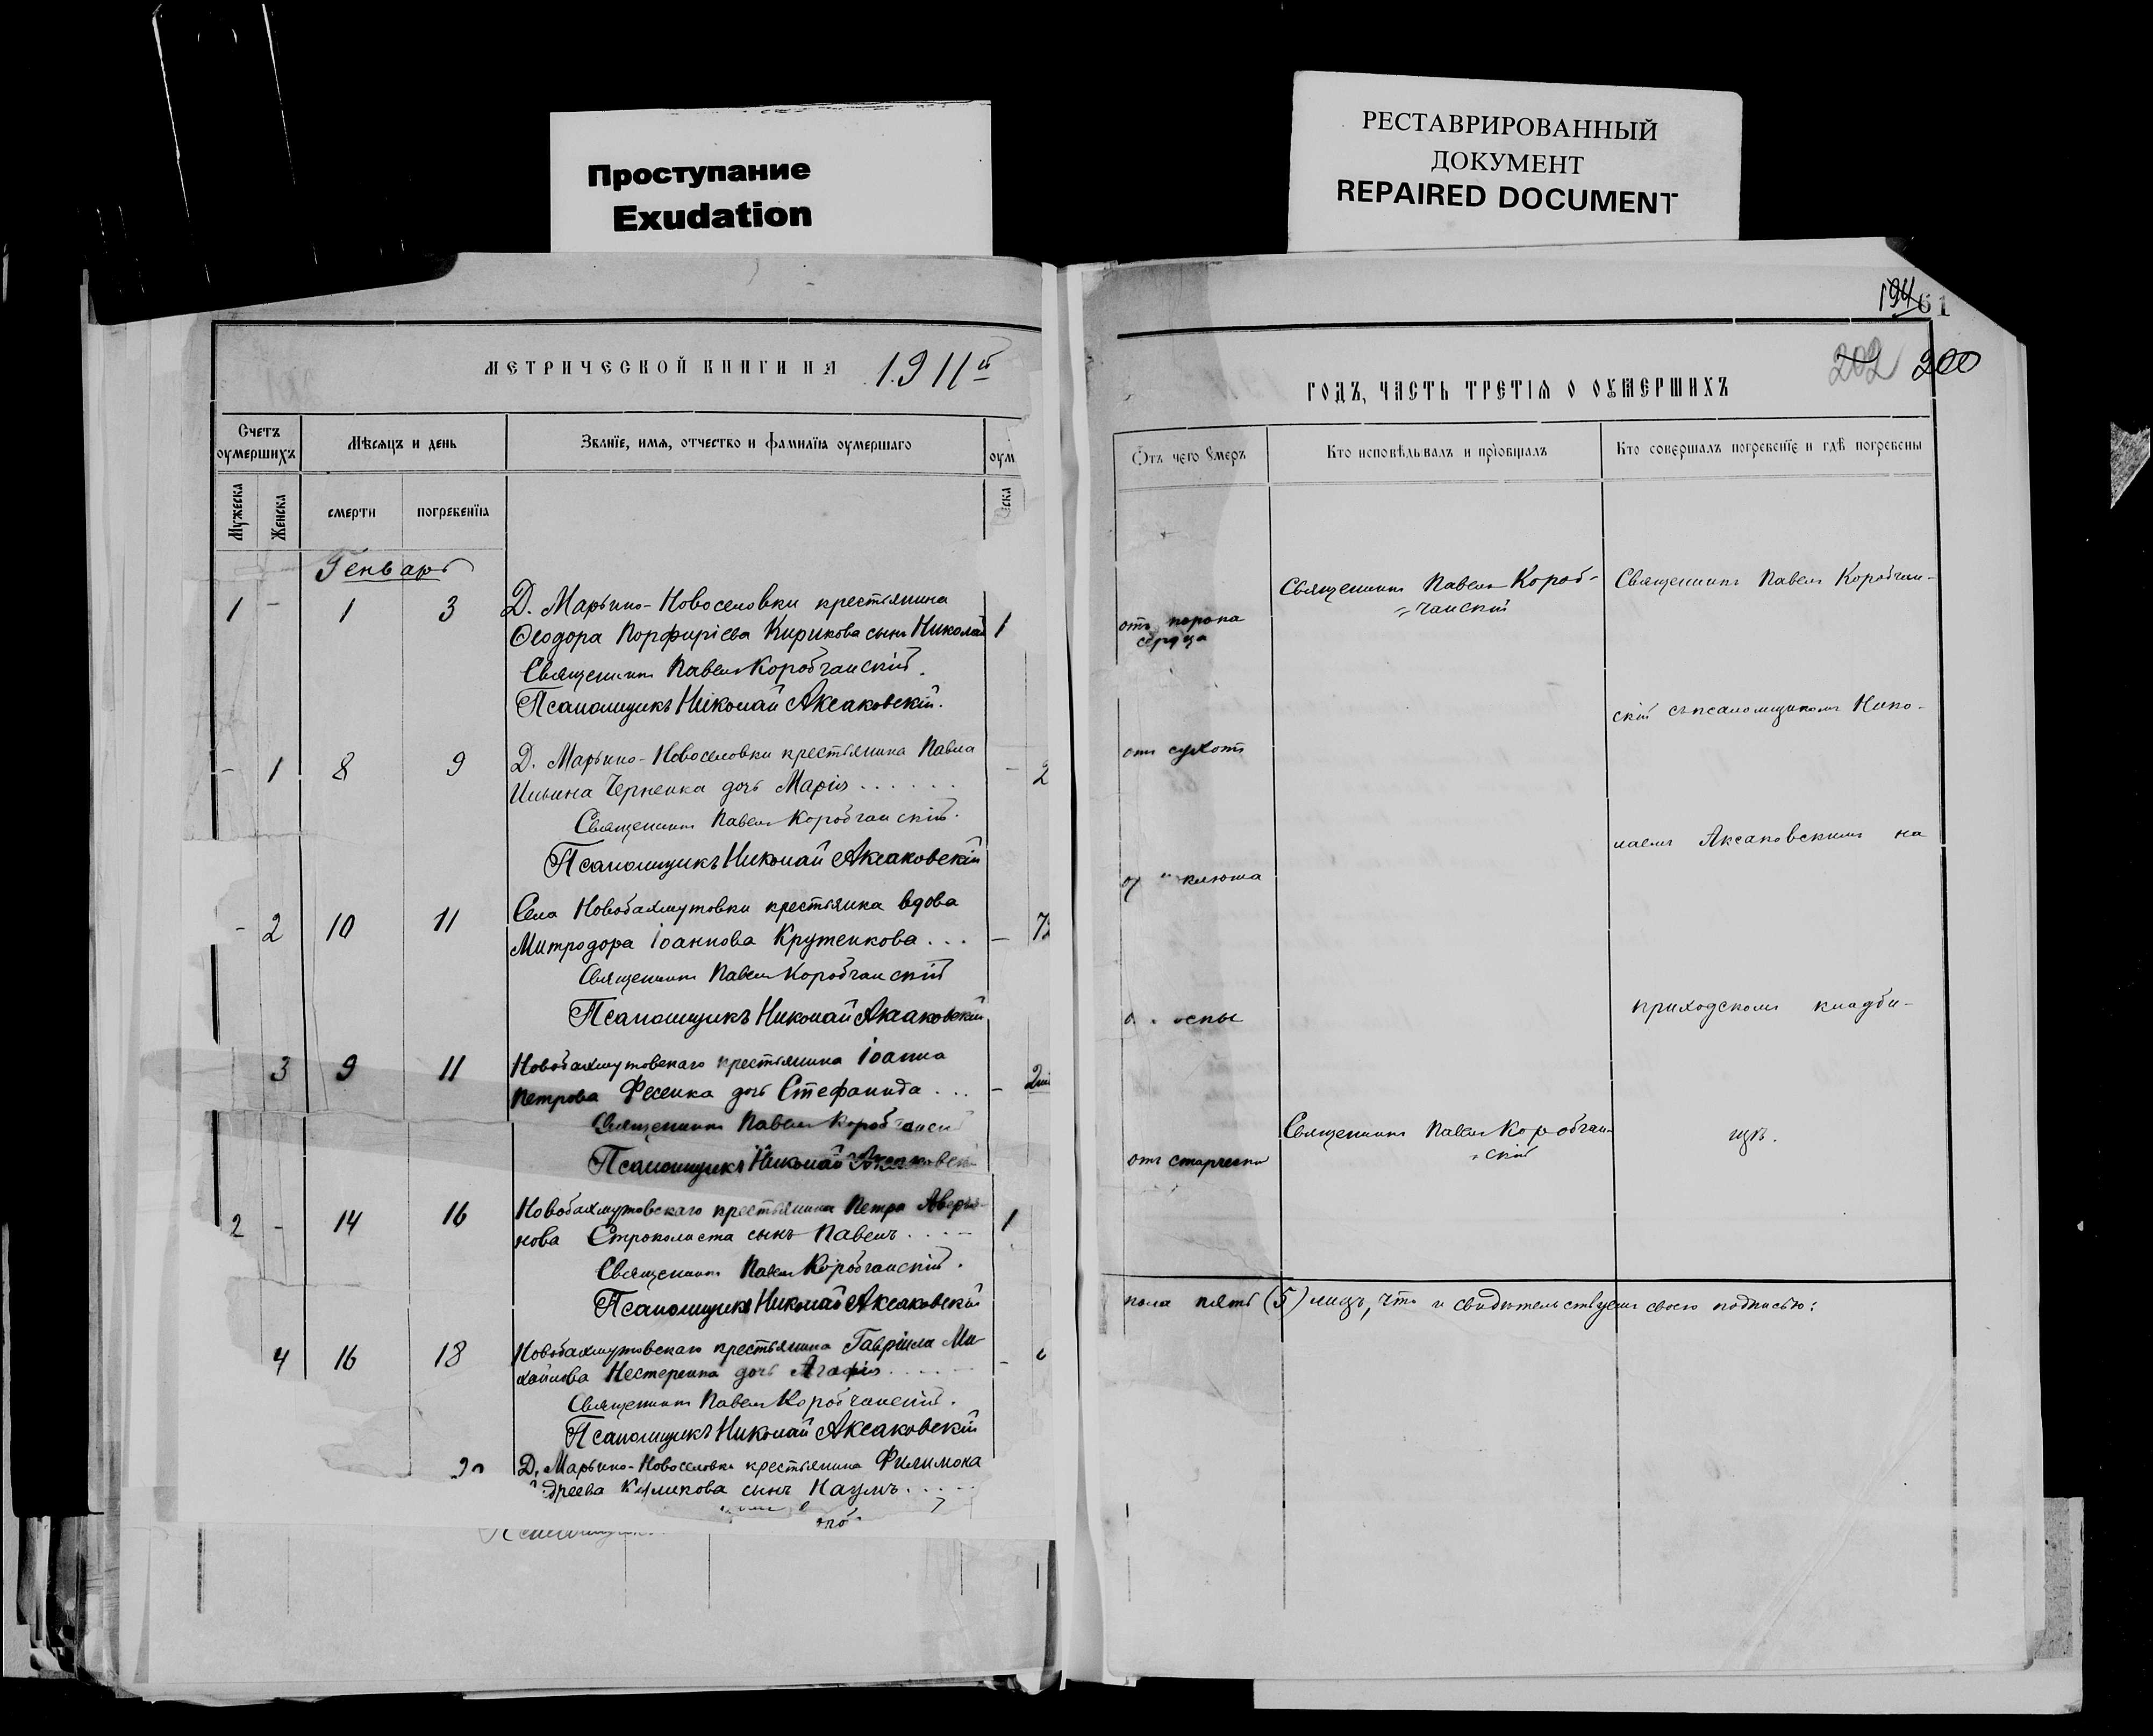 Проступание
Exudation
РЕСТАВРИРОВАННЫЙ
ДОКУМЕНТ
REPAIRED DOCUMENT
МЕТРИЧЕСКОЙ КНИГИ НА 1911й
Счетъ оумершихъ
Мѣсяцъ и день
Званїе, имя, отчество и фамилїя оумершаго
оум
Мужеска
Женска
смерти
погребенїя
ска
Генварь
1 - 1 3 Д. Марьино-Новоселовки крестьянина
Ѳеодора Порфиріева Кирикова сынъ Николай 1
Священникъ Павелъ Коробчанскій.
Псаломщикъ Николай Аксаковскій.
- 1 8 9 Д. Марьино-Новоселовки крестьянина Павла
Ильина Черненка дочь Марія . . . . . . - 2
Священникъ Павелъ Коробчанскій.
Псаломщикъ Николай Аксаковскій
- 2 10 11 Села Новобахмутовки крестьянка вдова
Митродора Іоаннова Крутенкова . . . - 72
Священникъ Павелъ Коробчанскій
Псаломщикъ Николай Аксаковскій
3 9 11 Новобахмутовскаго крестьянина Іоанна
Петрова Фесенка дочь Стефанида . . . -
Священникъ Павелъ Коробчанскі
Псаломщикъ Николай Аксаковскі
2 - 14 16 Новобахмутовскаго крестьянина Петра Аверья-
нова Строколиста сынъ Павелъ . . . . 1
Священникъ Павелъ Коробчанскій.
Псаломщикъ Николай Аксаковскій
4 16 18 Новобахмутовскаго крестьянина Гавріила Ми-
хайлова Нестеренка дочь Агафія . . . . -
Священникъ Павелъ Коробчанскій.
Псаломщикъ Николай Аксаковскій
Д. Марьино-Новоселовки крестьянина Филимона
дреева Куликова сынъ Наумъ . . . . .
194 61
202 200
ГОДЪ, ЧАСТЬ ТРЕТІЯ О ОУМЕРШИХЪ
Отъ чего Умеръ
Кто исповѣдывалъ и прїобщалъ
Кто совершалъ погребенїе и гдѣ погребены
Священникъ Павелъ Короб-
=чанскій
Священникъ Павелъ Коробчан-
отъ порока
сердца
скій съ псаломщикомъ Нико-
отъ сухотъ
лаемъ Аксаковскимъ на
клюша
приходскомъ кладби-
оспы
Священникъ Павелъ Коробчан-
=скій
щѣ.
отъ старческа
пола пять (5) лицъ, что и свидѣтельствуемъ своею подписью: